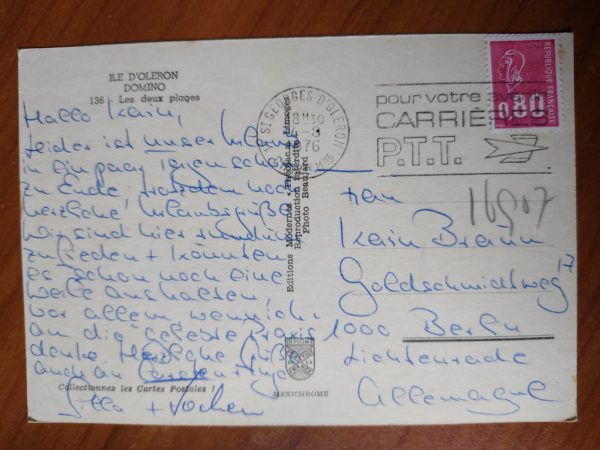 ILE D'OLERON
DOMINO
136 - Les deux plages
Hallo Karin,
leider ist unser Urlaub
in ein paar Tagen schon
zu Ende, trotzdem noch
herzliche Urlaubsgrüße.
Wir sind hier rundum
zufrieden + könnten
es schon noch eine
Weile aushalten,
vor allem wenn ich
an die geliebte Praxis
denke. Herzliche Grüße
auch an
Collectionnez les Cartes Postales !
+ Jochen
Editions Modernes « Théojac », Limoges
Reproduction interdite
Photo Beaulard
MEXICHROME
ST GEORGES D'OLERON
30
4-8
76
pour votre
CARRIÈRE
P.T.T.
REPUBLIQUE FRANÇAISE
0,80
16907
Karin Braun
Goldschmidtweg 17
1000 Berlin
Lichtenrade
Allemagne